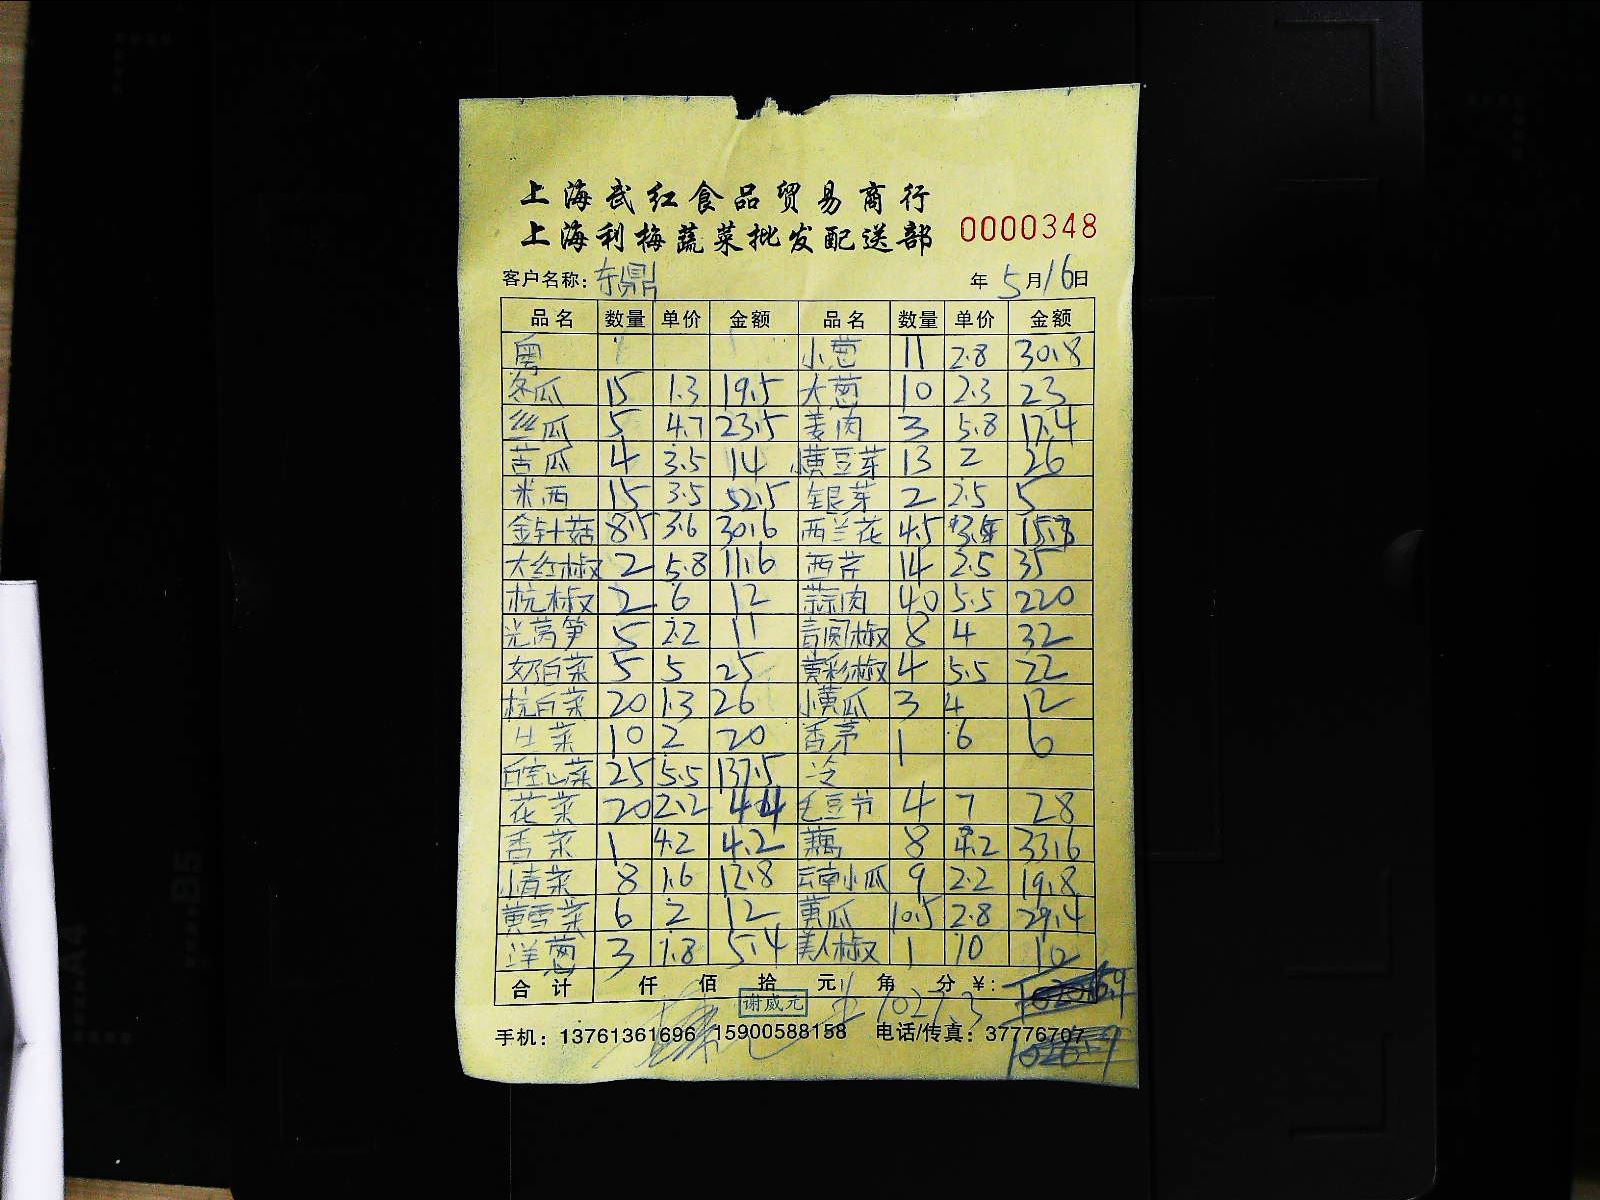 上海武红食品贸易商行
上海利梅蔬菜批发配送部 0000348
客户名称: 东鼎 年 5 月 16 日
品名 数量 单价 金额 品名 数量 单价 金额
粤 小葱 11 2.8 30.8
冬瓜 15 1.3 19.5 大葱 10 2.3 23
丝瓜 5 4.7 23.5 姜肉 3 5.8 17.4
苦瓜 4 3.5 14 黄豆芽 13 2 26
米西 15 3.5 52.5 银芽 2 2.5 5
金针菇 8.5 3.6 30.6 西兰花 4.5
大红椒 2 5.8 11.6 西芹 14 2.5 35
杭椒 2 6 12 蒜肉 40 5.5 220
光莴笋 5 2.2 11 青圆椒 8 4 32
奶白菜 5 5 25 黄彩椒 4 5.5 22
杭白菜 20 1.3 26 小黄瓜 3 4 12
生菜 10 2 20 香茅 1 6 6
白空心菜 25 5.5 137.5 冷
花菜 20 2.2 44 毛豆节 4 7 28
香菜 1 4.2 4.2 藕 8 4.2 33.6
小青菜 8 1.6 12.8 云南小瓜 9 2.2 19.8
黄雪菜 6 2 12 黄瓜 10.5 2.8 29.4
洋葱 3 1.8 5.4 美人椒 1 10 10
合计 仟 佰 拾 元 角 分 ¥:
谢威元 1027.3
手机: 13761361696 15900588158 电话/传真: 37776707